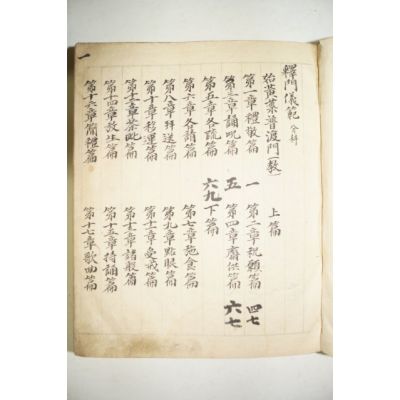 釋門儀範 分科
始黄葉普渡門(教)
上篇
第一章禮敬篇 一
第二章祝願篇 四七
第三章誦呪篇 五
第四章齋供篇 六七
第五章各疏篇 六九
下篇
第六章各請篇
第七章施食篇
第八章拜送篇
第九章點眼篇
第十章移運篇
第十一章受戒篇
第十二章茶毗篇
第十三章諸般篇
第十四章放生篇
第十五章持誦篇
第十六章簡禮篇
第十七章歌曲篇
一